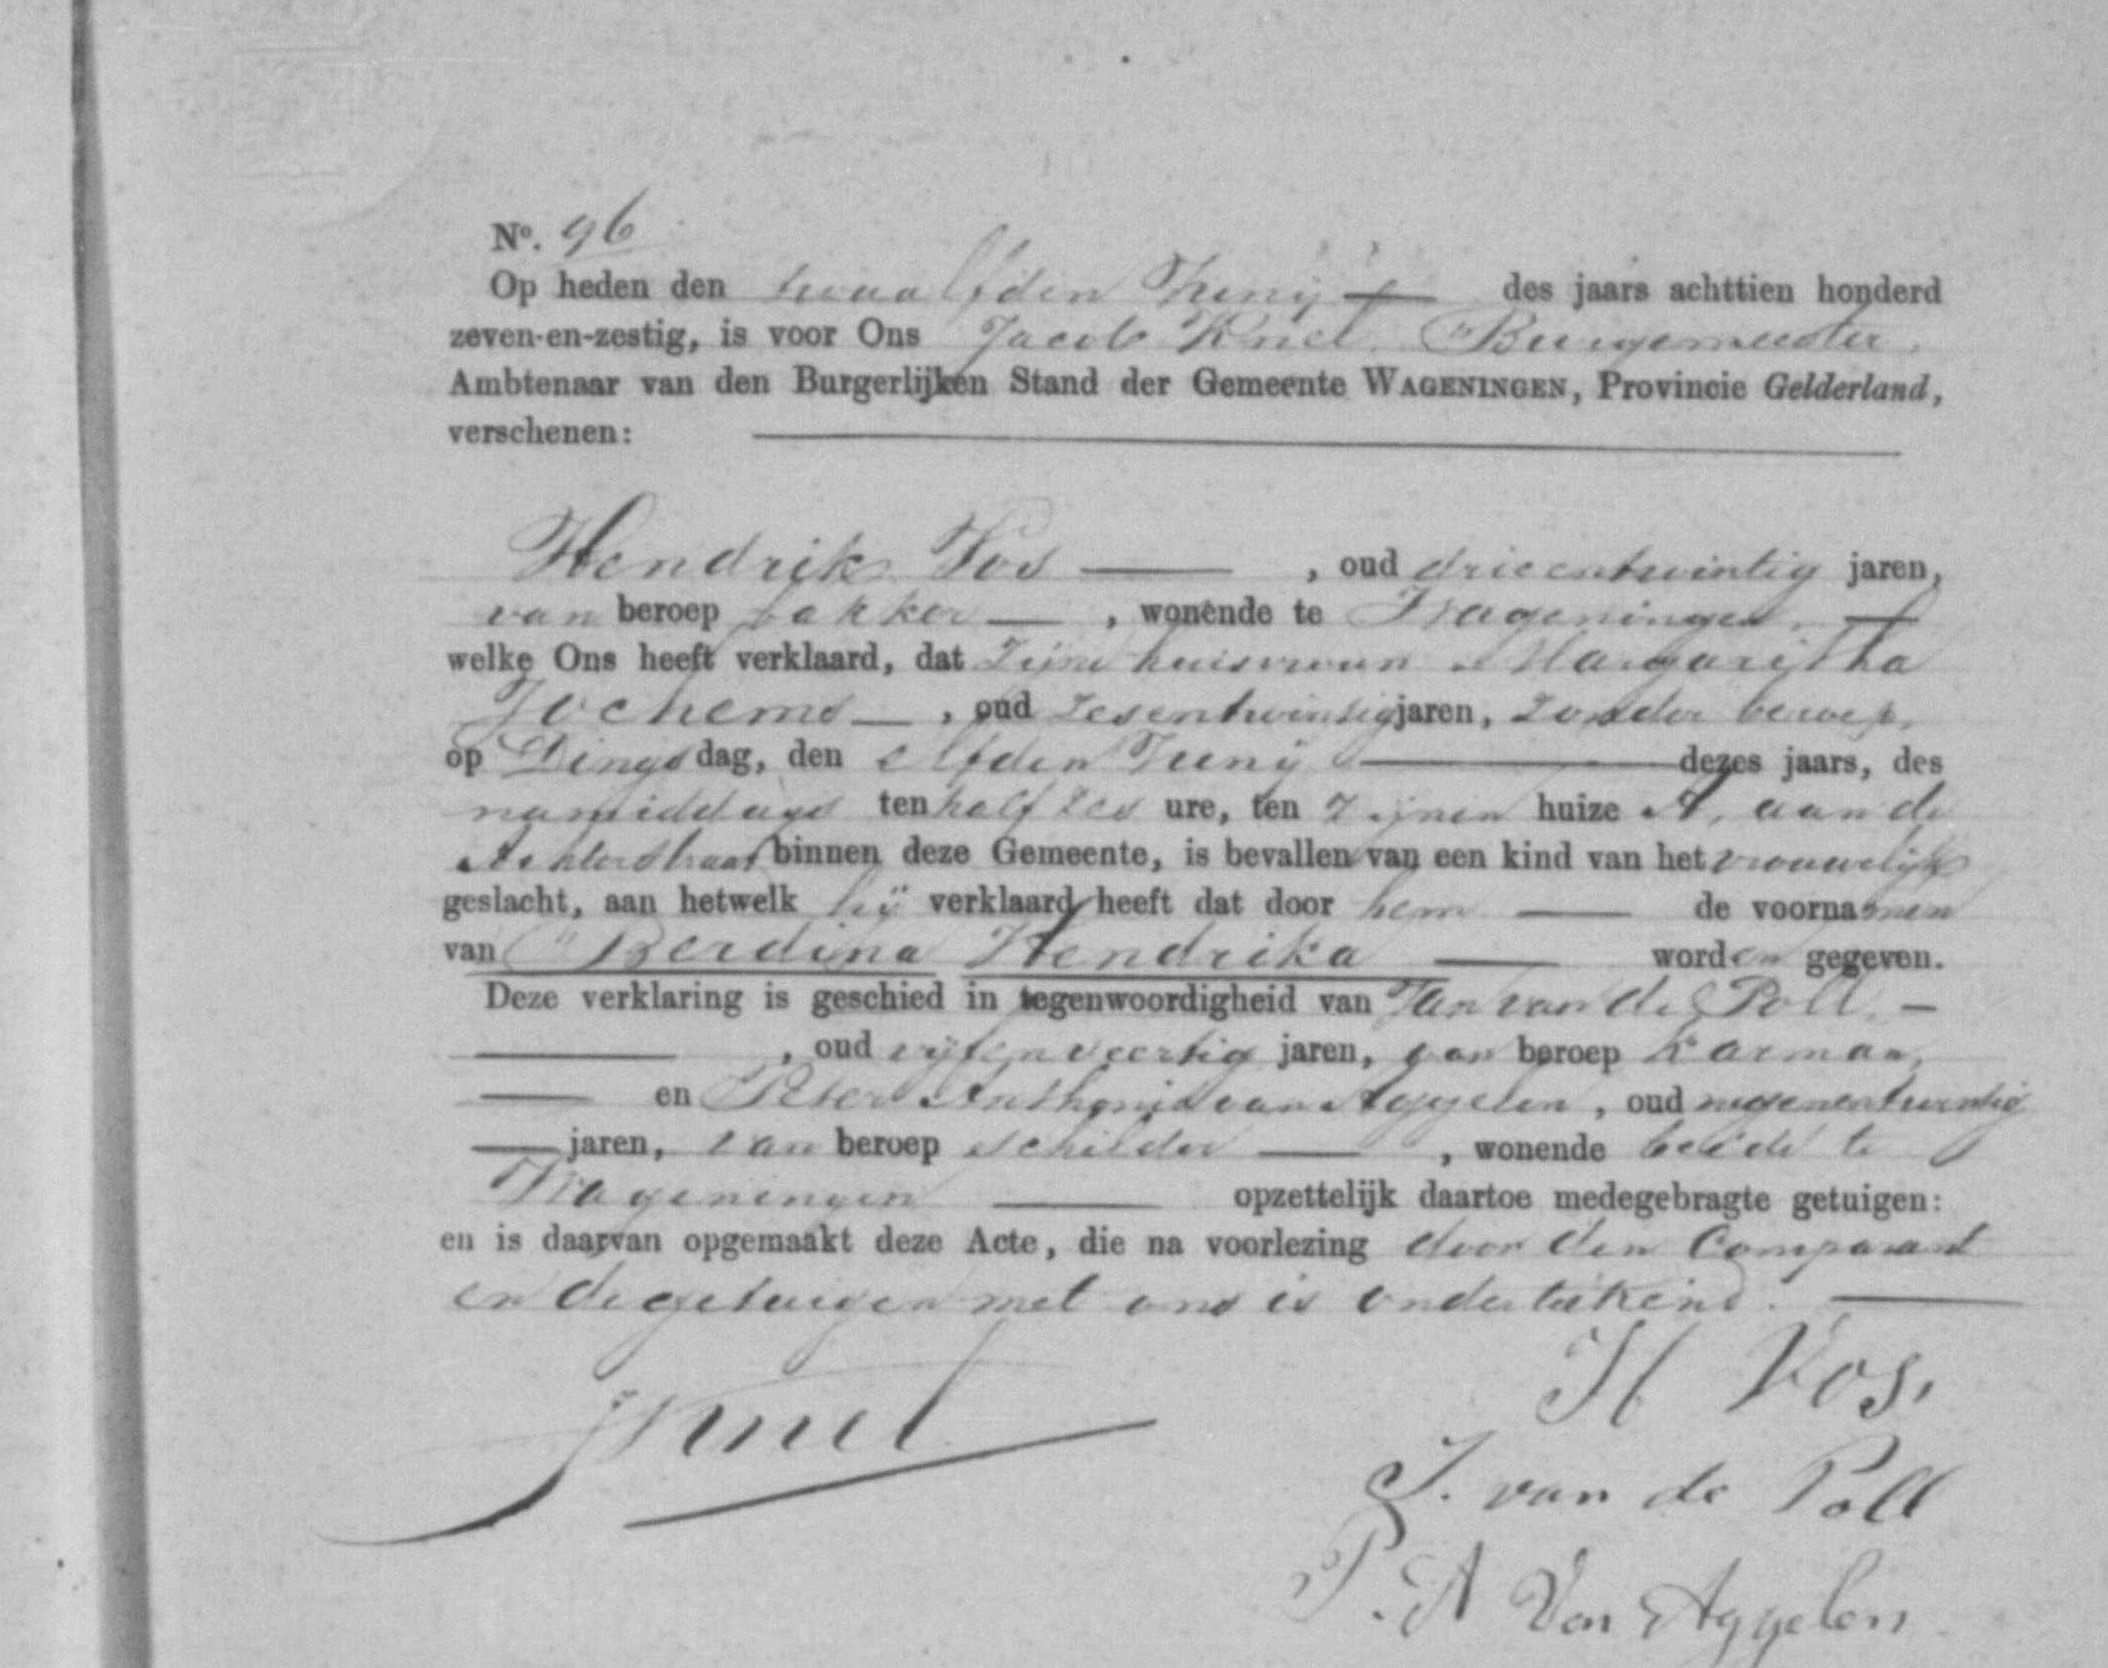 No. 96
Op heden den twaalfden Junij des jaars achttien honderd
zeven-en-zestig, is voor Ons Jacob Knel Burgemeester,
Ambtenaar van den Burgerlijken Stand der Gemeente WAGENINGEN, Provincie Gelderland,
verschenen:
Hendrik Vos , oud drieentwintig jaren,
van beroep bakker , wonende te Wageningen,
welke Ons heeft verklaard, dat zijne huisvrouw Margaritha
Jochems , oud zesentwintig jaren, zonder beroep,
op Dingsdag, den elfden Junij dezes jaars, des
namiddags ten half zes ure, ten zijnen huize A, aan de
Achterstraat binnen deze Gemeente, is bevallen van een kind van het vrouwelijk
geslacht, aan hetwelk hij verklaard heeft dat door hem de voornamen
van Berdina Hendrika worden gegeven.
Deze verklaring is geschied in tegenwoordigheid van Jan van de Poll,
, oud vijfenveertig jaren, van beroep karman,
en Peter Anthonie van Aggelen , oud negenentwintig
jaren, van beroep schilder , wonende beide te
Wageningen opzettelijk daartoe medegebragte getuigen:
en is daarvan opgemaakt deze Acte, die na voorlezing door den Comparant
en de getuigen met ons is onderteekend.
JKnel
H Vos,
J. van de Poll
P. A Van Aggelen